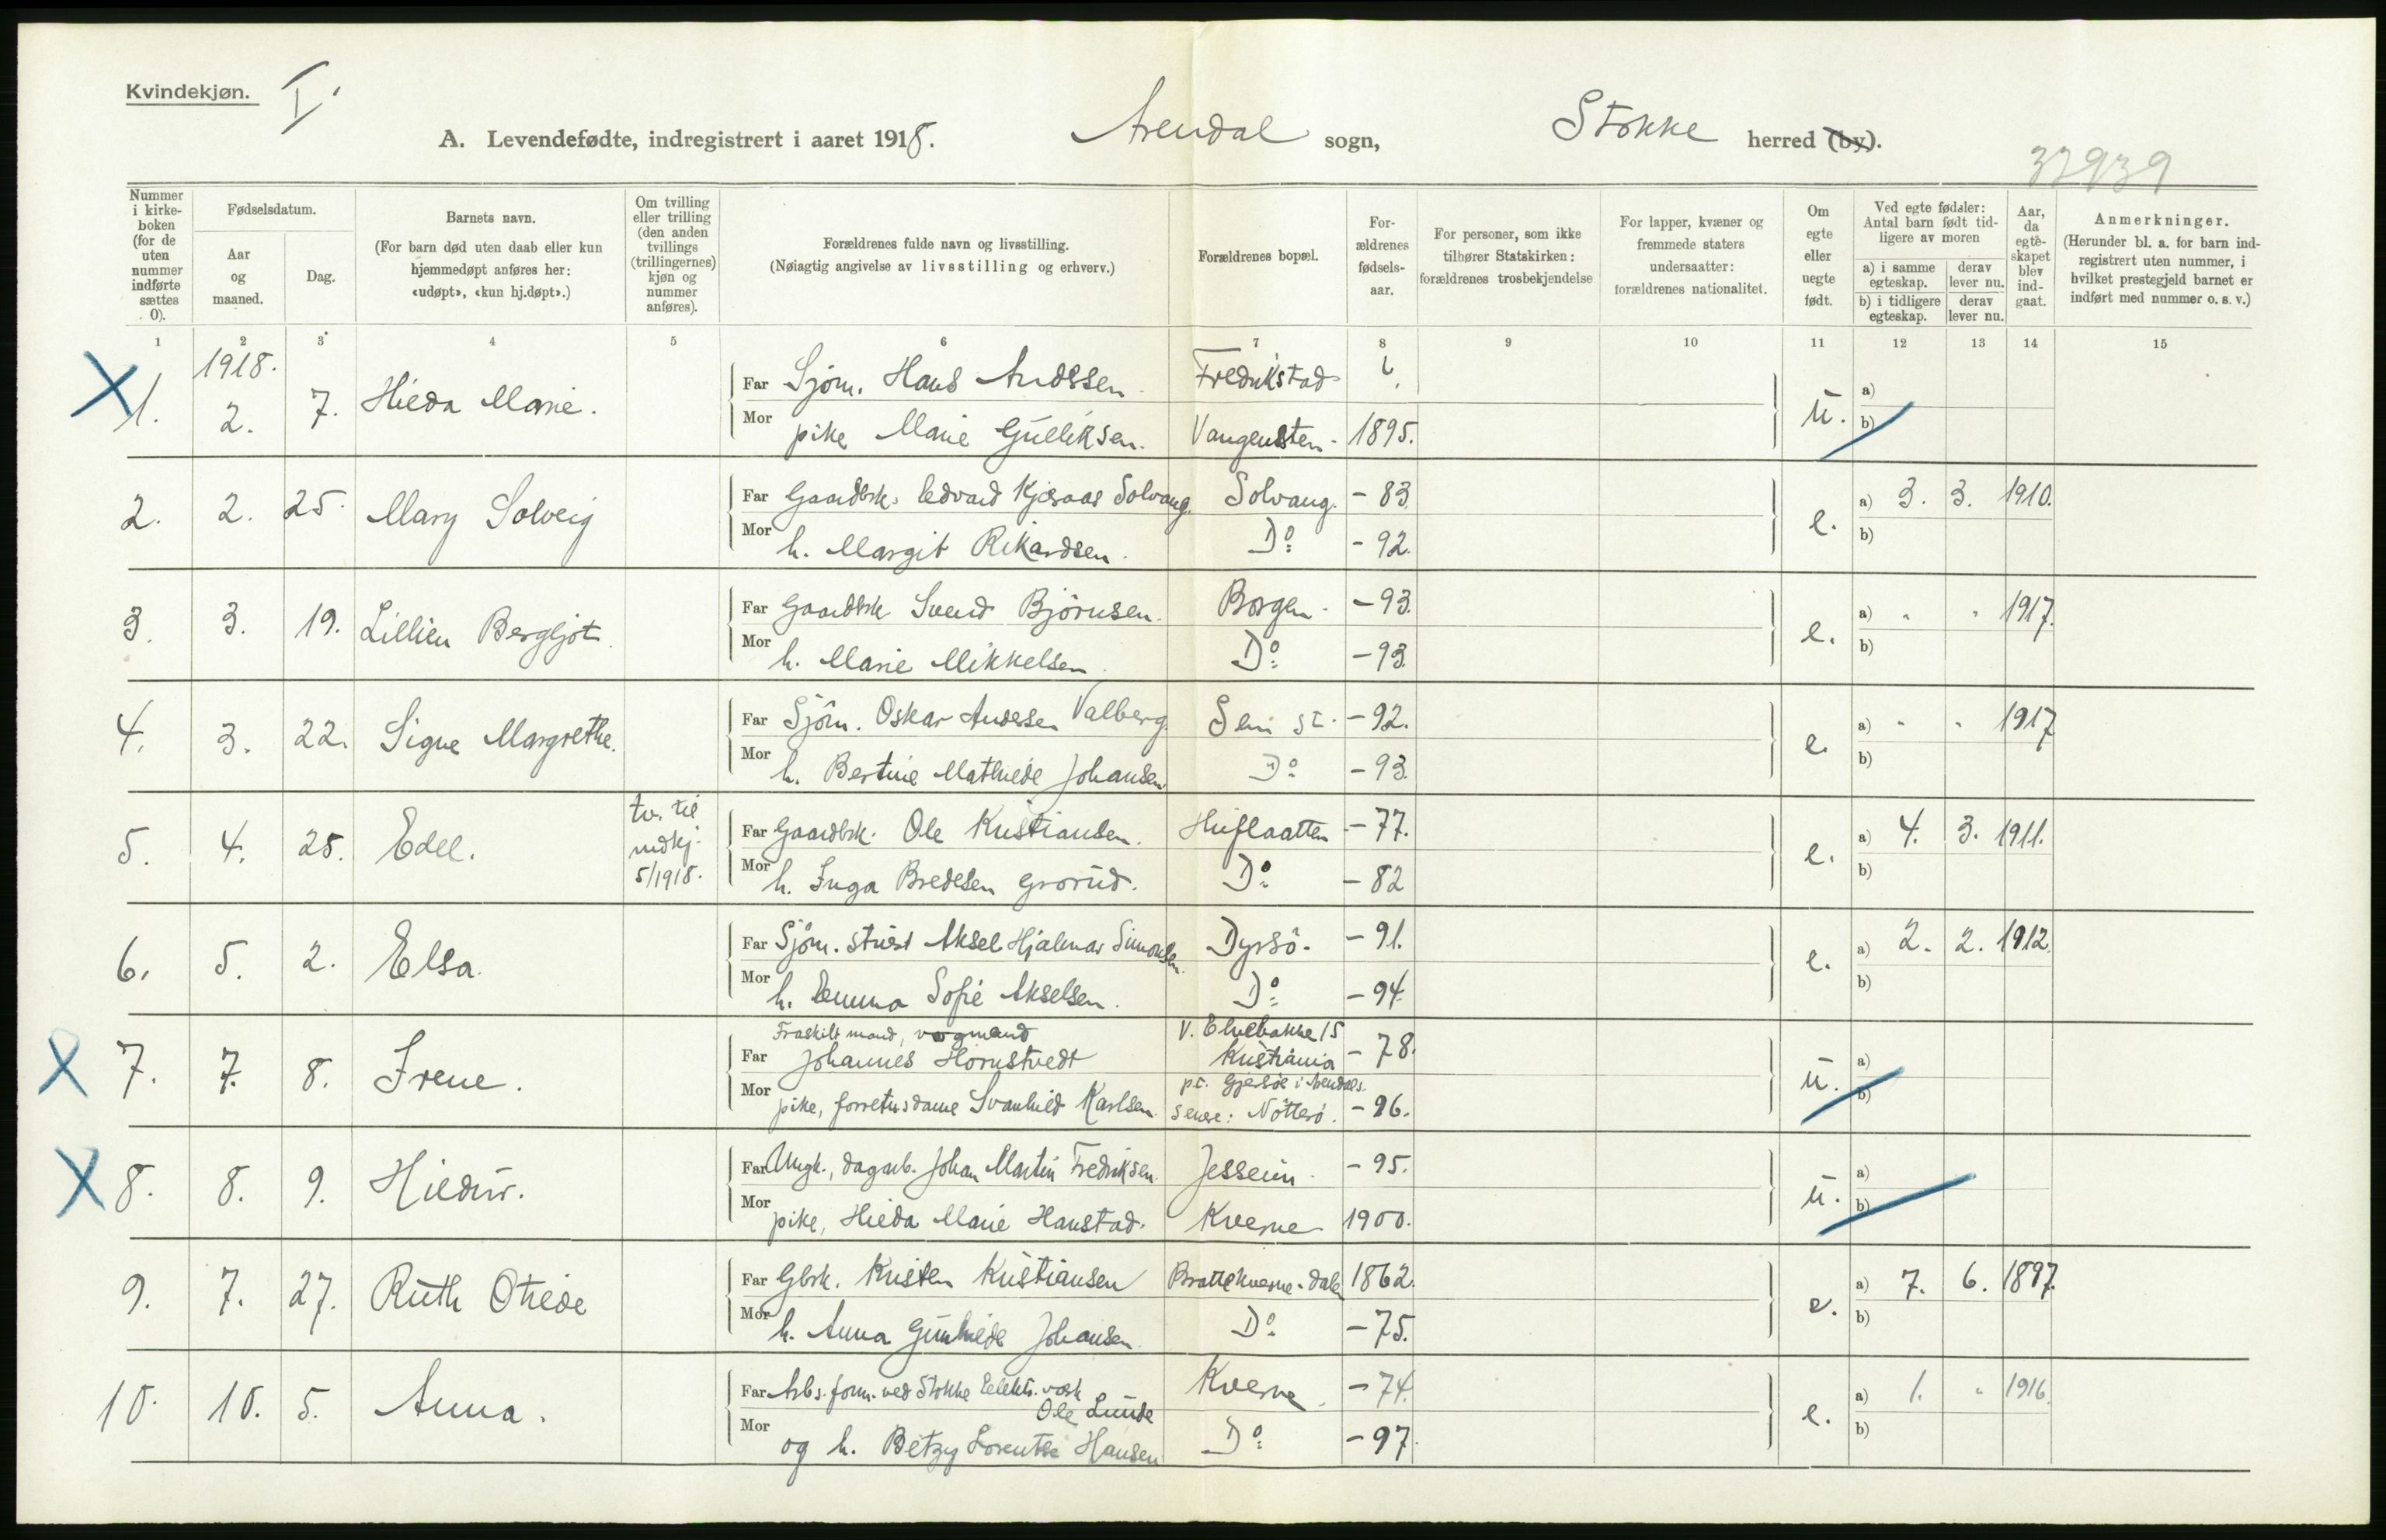 Kvindekjøn. I.
A. Levendefødte, indregistrert i aaret 1918. Arendal sogn, Stokke herred (by).
37939
Nummer i kirkeboken (for de uten nummer indførte sættes 0).
Fødselsdatum.
Aar og maaned.
Dag.
Barnets navn.
(For barn død uten daab eller kun hjemmedøpt anføres her: «udøpt», «kun hj.døpt».)
Om tvilling eller trilling (den anden tvillings (trillingernes) kjøn og nummer anføres).
Forældrenes fulde navn og livsstilling.
(Nøiagtig angivelse av livsstilling og erhverv.)
Forældrenes bopæl.
Forældrenes fødselsaar.
For personer, som ikke tilhører Statskirken: forældrenes trosbekjendelse
For lapper, kvæner og fremmede staters undersaatter: forældrenes nationalitet.
Om egte eller uegte født.
Ved egte fødsler: Antal barn født tidligere av moren
a) i samme egteskap.
derav lever nu.
b) i tidligere egteskap.
derav lever nu.
Aar, da egteskapet blev indgaat.
Anmerkninger.
(Herunder bl. a. for barn indregistrert uten nummer, i hvilket prestegjeld barnet er indført med nummer o. s. v.)
1 2 3 4 5 6 7 8 9 10 11 12 13 14 15
1918.
X 1. 2. 7. Hilda Marie. Far Sjøm. Hans Andssen. Fredrikstad u. a)
Mor pike Marie Gulliksen. Vangensten. 1895. b)
2. 2. 25. Mary Solveig Far Gaardbrk. Edvard Kjæraas Solvang. Solvang. - 83. e. a) 3. 3. 1910.
Mor h. Margit Rikardsen. Do - 92. b)
3. 3. 19. Lillian Bergljot. Far Gaardbrk Svend Bjørnsen. Borgen. - 93. e. a) " " 1917.
Mor h. Marie Mikkelsen. Do - 93. b)
4. 3. 22. Signe Margrethe. Far Sjøm. Oskar Anderssen Valberg. Sem st. - 92. e. a) " " 1917
Mor h. Bertine Mathilde Johansen. Do - 93. b)
5. 4. 25. Edel. tv. til mdkj. 5/1918. Far Gaardbrk. Ole Kristiansen. - 77. e. a) 4. 3. 1911.
Mor h. Inga Bredesen Grorud. Do - 82 b)
6. 5. 2. Elsa. Far Sjøm. Aksel Hjalmar Simonsen. Dyrsø. - 91. e. a) 2. 2. 1912.
Mor h. Emma Sofie Akselsen. Do - 94. b)
Fraskilt mand, vognmand V. Elvebakke 15
X 7. 7. 8. Irene. Far Johannes Hornstvedt Kristiania - 78. u. a)
pt. Gjersøe i Arendals.
Mor pike, forretn.sdame Svanhild Karlsen. senere: Nøtterø. - 96. b)
X 8. 8. 9. Hildur. Far Ungk., dagarb. Johan Martin Fredriksen. Jesseim. - 95. u. a)
Mor pike, Hilda Marie Hanstad. Kverne 1900. b)
9. 7. 27. Ruth Otilde Far Gbrk. Kristen Kristiansen Brattekverne-dalen 1862. e. a) 7. 6. 1897.
Mor h. Anna Gunhilde Johansen. Do - 75. b)
10. 10. 5. Anna. Far Arbs.form. ved Stokke Elektr. værk Kverne. - 74. e. a) 1. " 1916.
Ole Lunde
Mor og h. Betzy Lorentse Hansen Do - 97. b)